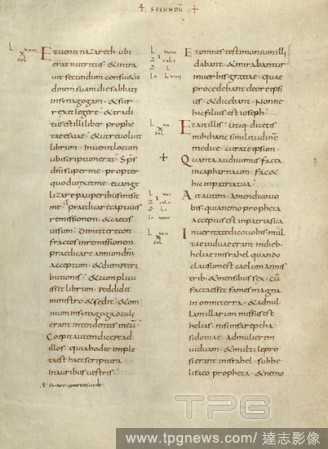 + SECUNDŪ +
Et uenit nazareth ubi
erat nutritus · & intra
uit secundum consuetu
dinem suam die sabbati
in synagogam · & sur
rexit legere · & tradi
tus est illi liber prophe
tae esaiae · & ut reuoluit
librum · inuenit locum
ubi scriptum erat · Sp̄s
dn̄i super me · propter
quod unxit me · euange
lizare pauperibus misit
me · praedicare captiuis
remissionem · & caecis
uisum · dimittere con
fractos in remissionem
praedicare annum dn̄i
acceptum · & diem retri
butionis · & cum plicuis
set librum · reddidit
ministro & sedit · & om
nium in synagoga oculi
erant intendentes in eū ·
Coepit autem dicere ad
illos · quia hodie imple
ta est haec scriptura
in auribus uestris ·
Et omnes testimonium illi
dabant · & mirabantur
in uerbis gratiae · quae
procedebant de ore ip
sius · & dicebant · Nonne
hic filius est ioseph ·
Et ait illis · utique dicetis
mihi hanc similitudinē
medice cura te ipsum ·
Quanta audiuimus facta
in capharnaum · fac & hic
in patria tua ·
Ait autem · amen dico uo
bis · quia nemo propheta
acceptus est in patria sua
In ueritate dico uobis · mul
tae uiduae erant in dieb·
heliae in israhel · quando
clausum est caelum annis
trib· & mensibus sex · cū
facta esset fames magna
in omni terra · & ad nul
lam illarum missus est
helias · nisi in sarepta
sidoniae · ad mulierem
uiduam · & multi lepro
si erant in israhel · sub he
lisaeo propheta · & nemo
TPG
www.tpgnews.com / 達志影像